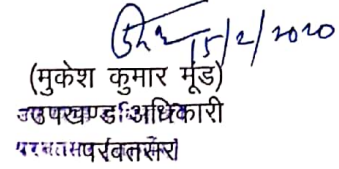 15/2/2020
(मुकेश कुमार मूंड)
उपखण्ड अधिकारी
परबतसर